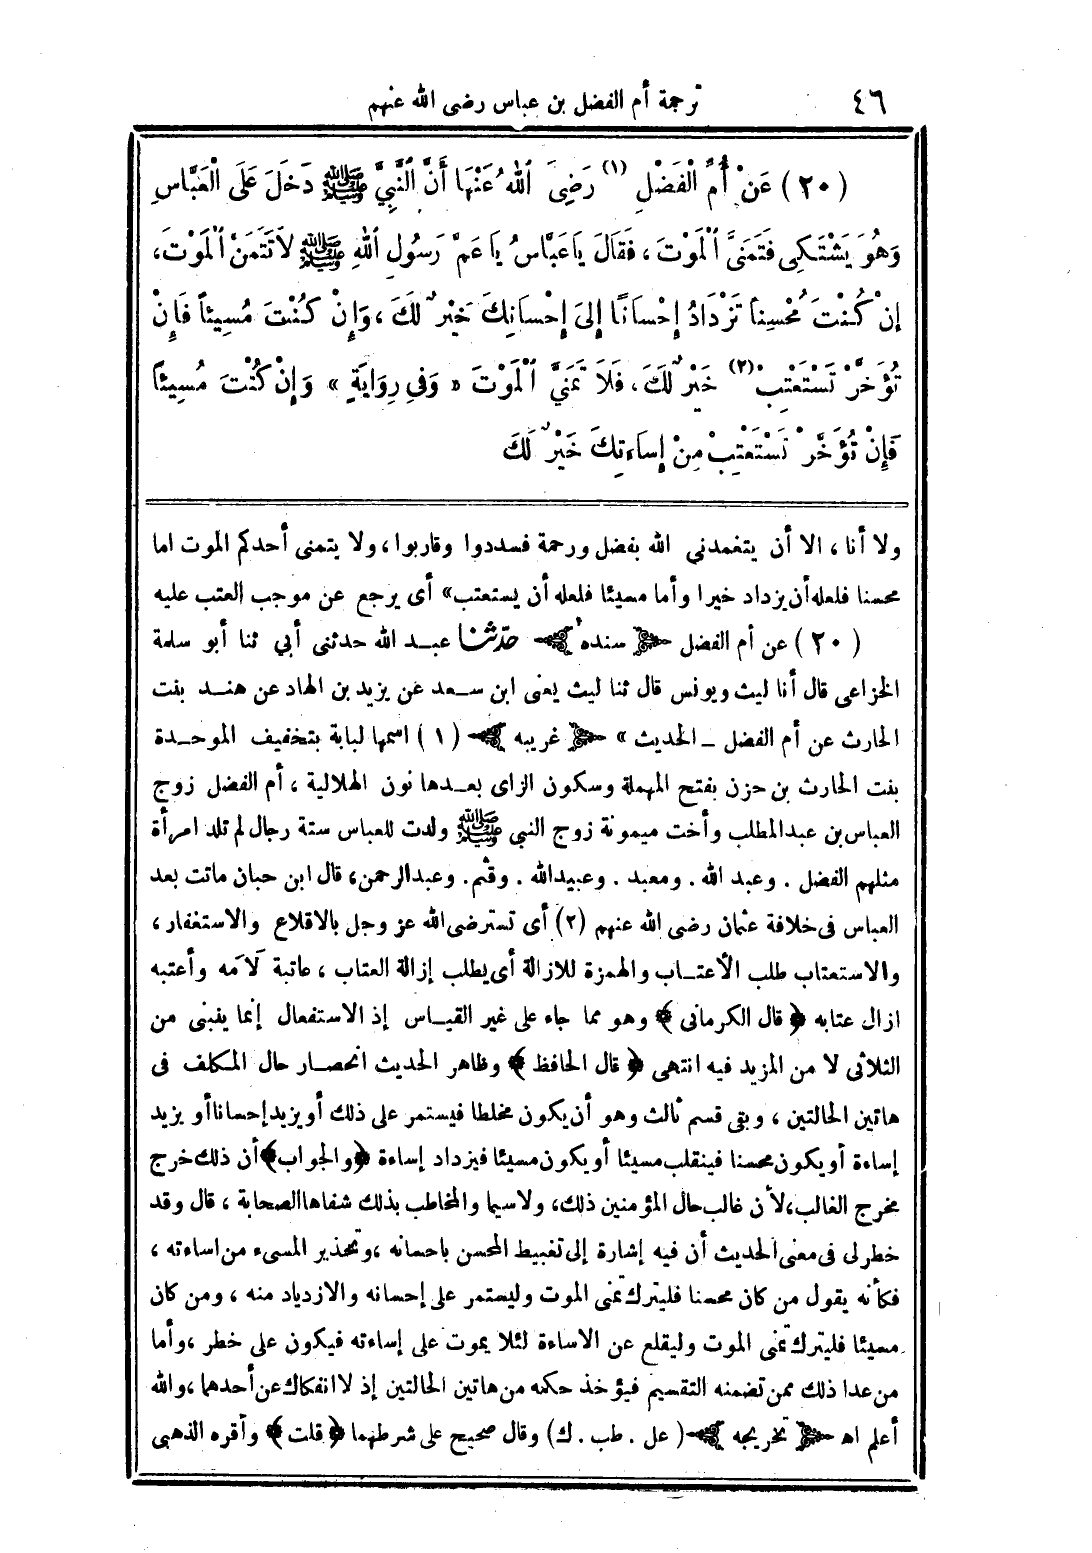 ٤٦ ترجمة أم الفضل بن عباس رضى الله عنهم
(٢٠) عَنْ أُمِّ الْفَضْلِ (١) رَضِىَ اللهُ عَنْهَا أَنَّ النَّبِيَّ ﷺ دَخَلَ عَلَى الْعَبَّاسِ
وَهُوَ يَشْتَكِى فَتَمَنَّى الْمَوْتَ ، فَقَالَ يَاعَبَّاسُ يَاعَمَّ رَسُولِ اللهِ ﷺ لاَتَتَمَنَّ الْمَوْتَ ،
إِنْ كُنْتَ مُحْسِناً تَزْدَادُ إِحْسَانًا إِلَى إِحْسَانِكَ خَيْرٌ لَكَ ، وَإِنْ كُنْتَ مُسِيئاً فَإِنْ
تُؤَخَّرْ تَسْتَعْتِبْ (٢) خَيْرٌ لَكَ ، فَلاَ تَمَنَّى الْمَوْتَ « وَفِى رِوَايَةٍ » وَإِنْ كُنْتَ مُسِيئاً
فَإِنْ تُؤَخَّرْ تَسْتَعْتِبْ مِنْ إِسَاءَتِكَ خَيْرٌ لَكَ
ولا أنا ، الا أن يتغمدني الله بفضل ورحمة فسددوا وقاربوا ، ولا يتمنى أحدكم الموت اما
محسنا فلعله أن يزداد خيرا وأما مسيئا فلعله أن يستعتب » أى يرجع عن موجب العتب عليه
(٢٠) عن أم الفضل ﴿ سنده ﴾ حدّثنا عبد الله حدثنى أبي ثنا أبو سلمة
الخزاعى قال أنا ليث ويونس قال ثنا ليث يعنى ابن سعد عن يزيد بن الهاد عن هند بنت
الحارث عن أم الفضل ـ الحديث » ﴿ غريبه ﴾ (١) اسمها لبابة بتخفيف الموحدة
بنت الحارث بن حزن بفتح المهملة وسكون الزاى بعدها نون الهلالية ، أم الفضل زوج
العباس بن عبدالمطلب وأخت ميمونة زوج النبي ﷺ ولدت للعباس ستة رجال لم تلد امرأة
مثلهم الفضل . وعبد الله . ومعبد . وعبيدالله . وقثم . وعبدالرحمن، قال ابن حبان ماتت بعد
العباس فى خلافة عثمان رضى الله عنهم (٢) أى تسترضى الله عز وجل بالاقلاع والاستغفار ،
والاستعتاب طلب الأعتاب والهمزة للازالة أى يطلب إزالة العتاب ، عاتبة لامه وأعتبه
ازال عتابه ﴿ قال الكرمانى ﴾ وهو مما جاء على غير القياس إذ الاستفعال إنما ينبنى من
الثلاثى لا من المزيد فيه انتهى ﴿ قال الحافظ ﴾ وظاهر الحديث انحصار حال المكلف فى
هاتين الحالتين ، وبقى قسم ثالث وهو أن يكون مخلطا فيستمر على ذلك أو يزيد إحسانا أو يزيد
إساءة أو يكون محسنا فينقلب مسيئا أو يكون مسيئا فيزداد إساءة ﴿ والجواب ﴾ أن ذلك خرج
مخرج الغالب، لأن غالب حال المؤمنين ذلك، ولاسيما والمخاطب بذلك شفاها الصحابة ، قال وقد
خطر لى فى معنى الحديث أن فيه إشارة إلى تغبيط المحسن باحسانه ، وتحذير المسىء من اساءته ،
فكأنه يقول من كان محسنا فليترك تمنى الموت وليستمر على إحسانه والازدياد منه ، ومن كان
مسيئا فليترك تمنى الموت وليقلع عن الاساءة لئلا يموت على إساءته فيكون على خطر ، وأما
من عدا ذلك ممن تضمنه التقسيم فيؤخذ حكمه من هاتين الحالتين إذ لا انفكاك عن أحدهما ، والله
أعلم اه ﴿ تخريجه ﴾ ( عل . طب . ك ) وقال صحيح على شرطهما ﴿ قلت ﴾ وأقره الذهبى